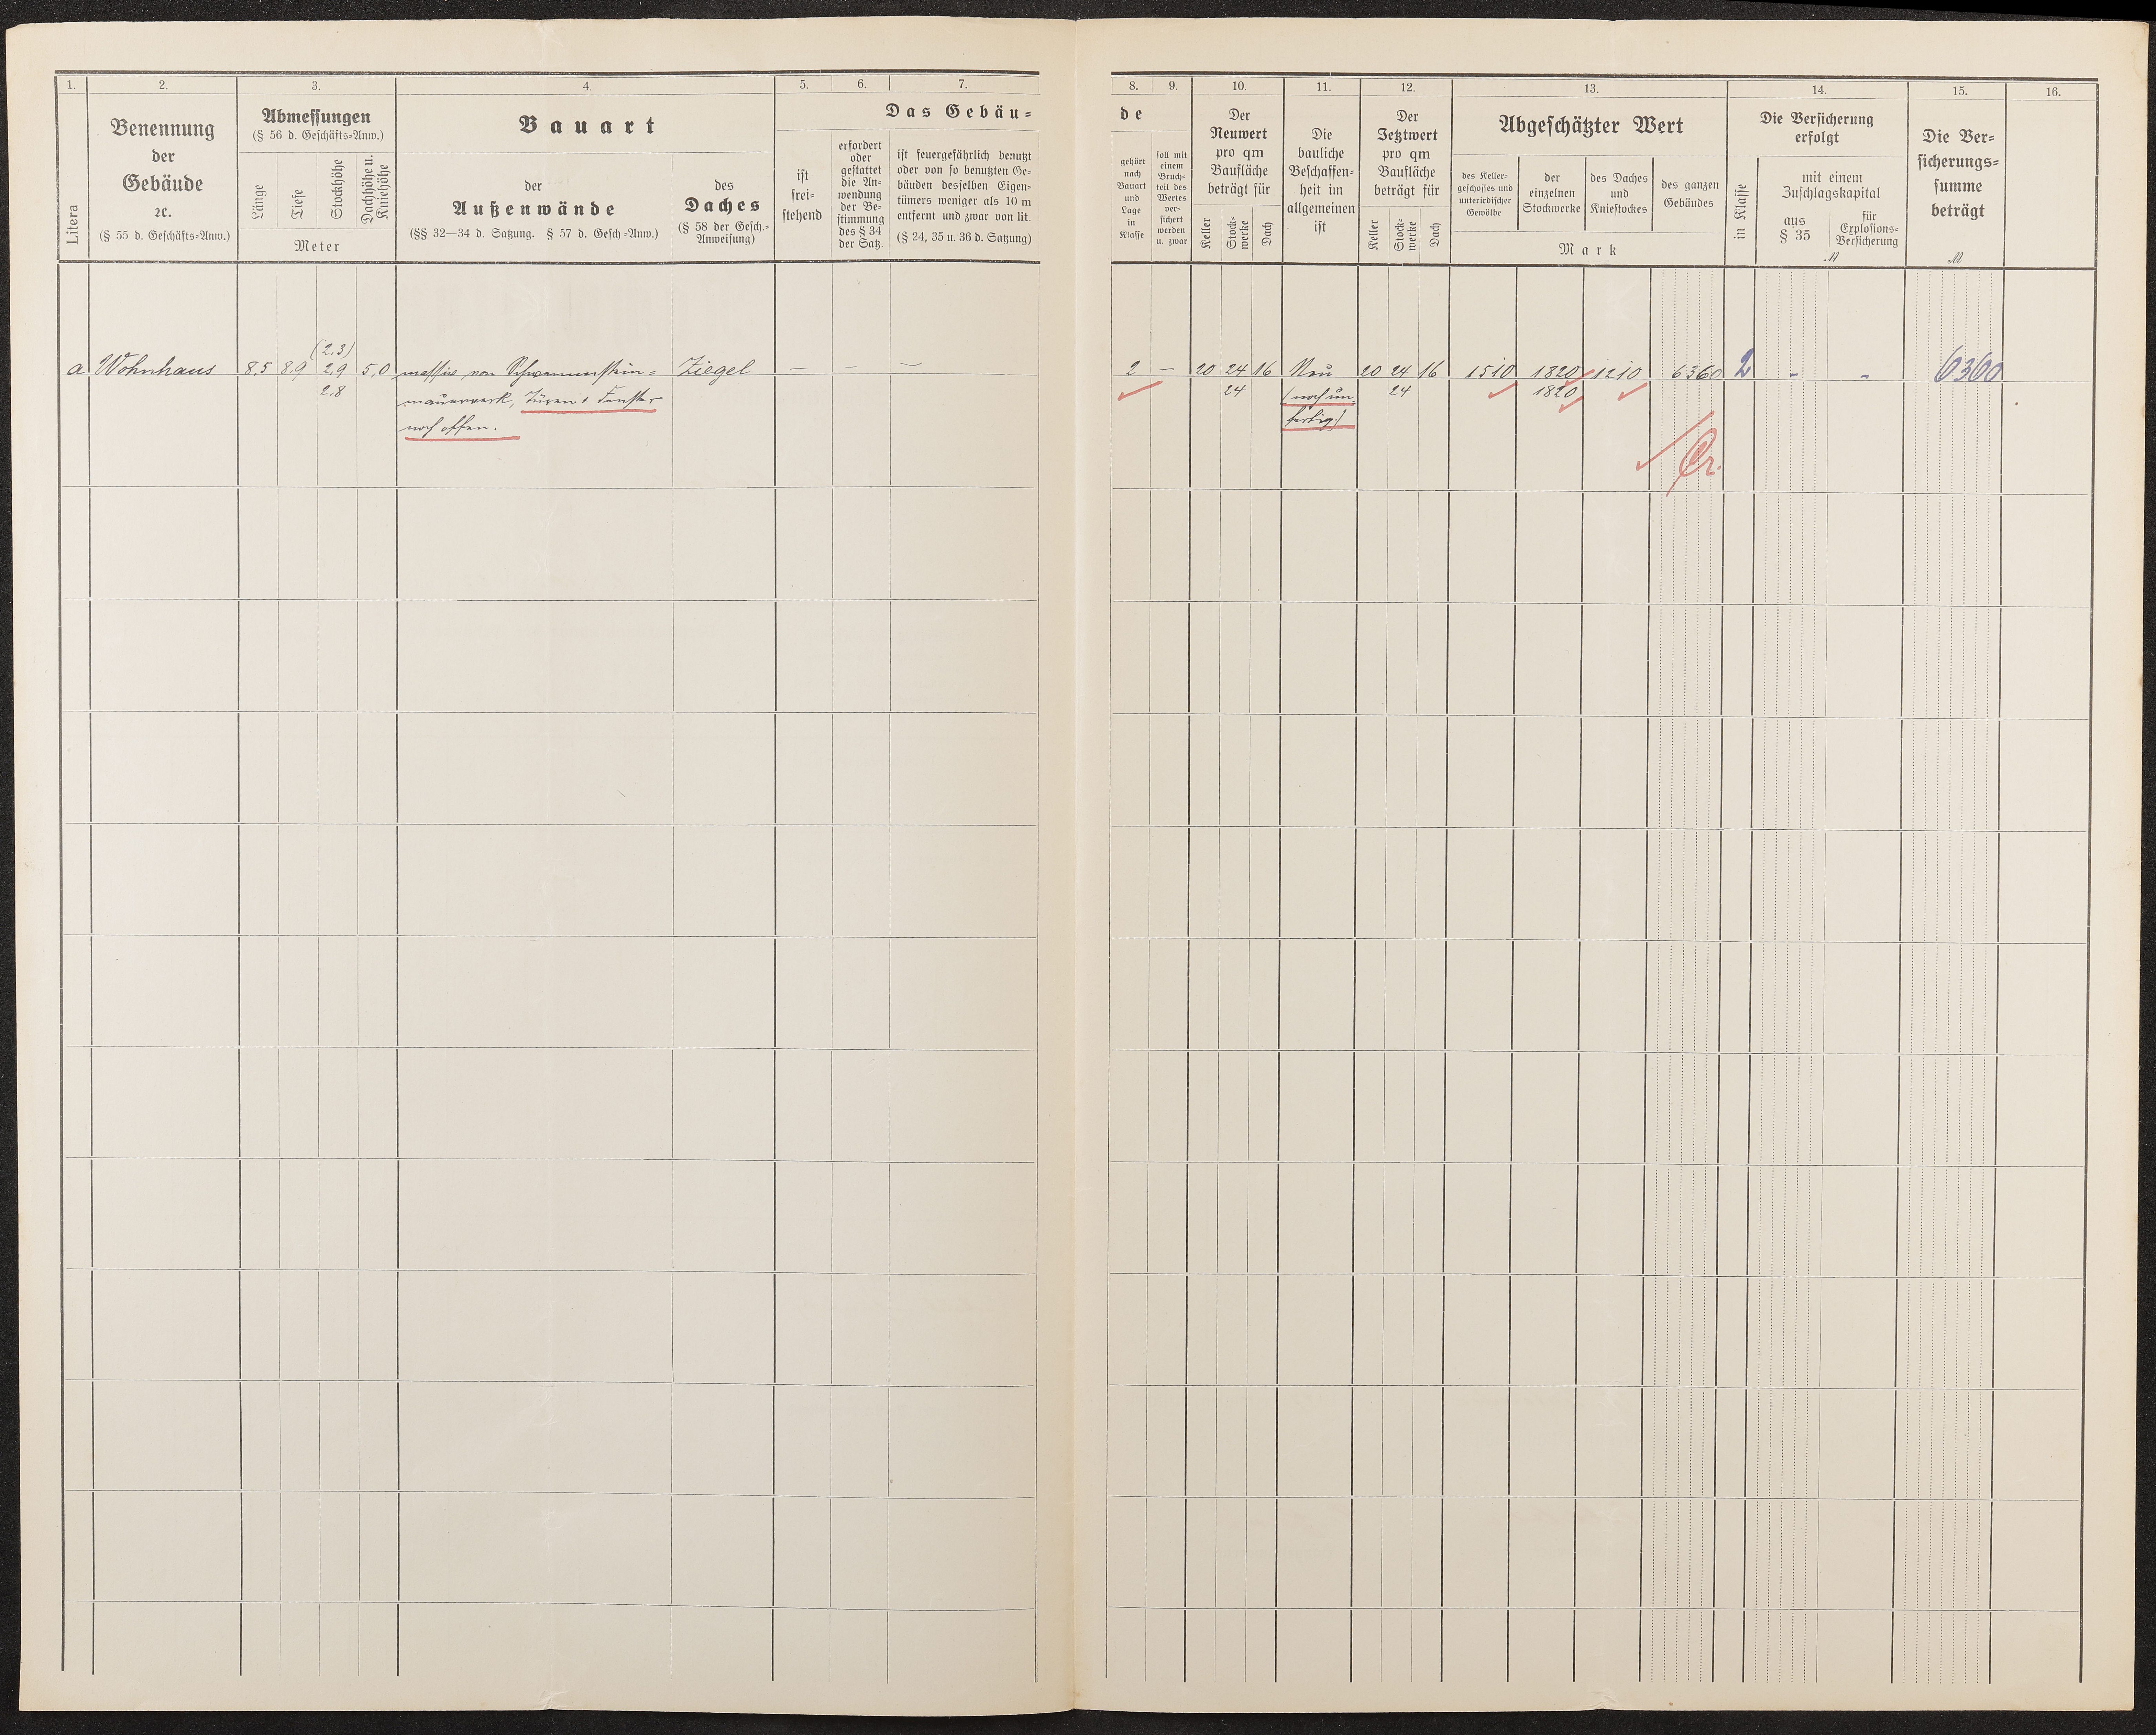 1.
2.
3.
4.
5.
6.
7.
Litera
Benennung
der
Gebäude
ꝛc.
(§ 55 d. Geschäfts-Anw.)
Abmessungen
(§ 56 d. Geschäfts-Anw.)
Länge
Tiefe
Stockhöhe
Dachhöhe u.
Kniehöhe
Meter
Bauart
der
Außenwände
(§§ 32—34 d. Satzung. § 57 d. Gesch.-Anw.)
des
Daches
(§ 58 der Gesch.-
Anweisung)
Das Gebäu-
ist
frei-
stehend
erfordert
oder
gestattet
die An-
wendung
der Be-
stimmung
des § 34
der Satz.
ist feuergefährlich benutzt
oder von so benutzten Ge-
bäuden desselben Eigen-
tümers weniger als 10 m
entfernt und zwar von lit.
(§ 24, 35 u. 36 d. Satzung)
(2,3)
a Wohnhaus 8,5 8,9 2,9 5,0 massiv von Schwemmstein- Ziegel — — —
2,8 mauerwerk, Türen & Fenster
noch offen.
8.
9.
10.
11.
12.
13.
14.
15.
16.
de
gehört
nach
Bauart
und
Lage
in
Klasse
soll mit
einem
Bruch-
teil des
Wertes
ver-
sichert
werden
u. zwar
Der
Neuwert
pro qm
Baufläche
beträgt für
Keller
Stock-
werke
Dach
Die
bauliche
Beschaffen-
heit im
allgemeinen
ist
Der
Jetztwert
pro qm
Baufläche
beträgt für
Keller
Stock-
werke
Dach
Abgeschätzter Wert
des Keller-
geschosses und
unterirdischer
Gewölbe
der
einzelnen
Stockwerke
des Daches
und
Kniestockes
des ganzen
Gebäudes
Mark
Die Versicherung
erfolgt
in Klasse
mit einem
Zuschlagskapital
aus
§ 35
für
Explosions-
Versicherung
M
Die Ver-
sicherungs-
summe
beträgt
M
2 — 20 24 16 Neu 20 24 16 1510 1820 1210 6360 2 - - 6360
24 (noch un- 24 1820
fertig)